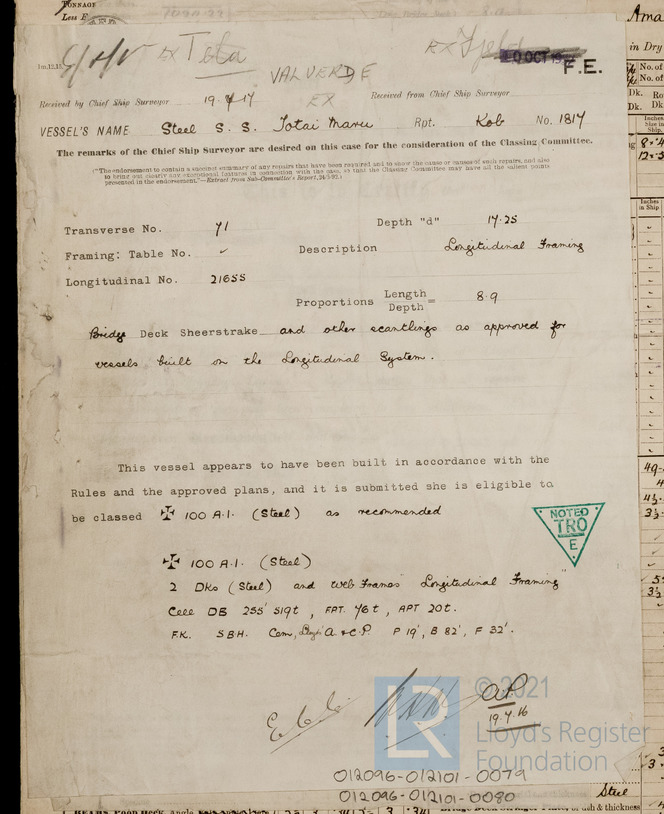 TONNAGE
Ex Tota
VALVERDE
EX
10 OCT
F.E.
Received by Chief Ship Surveyor 19.4.17 Received from Chief Ship Surveyor
VESSEL'S NAME Steel S. S. Totai Maru Rpt. Kob No. 1817
The remarks of the Chief Ship Surveyor are desired on this case for the consideration of the Classing Committee.
("The endorsement to contain a succinct summary of any repairs that have been required and to show the cause or causes of such repairs, and also
to bring out clearly any exceptional features in connection with the case, so that the Classing Committee may have all the salient points
presented in the endorsement."—Extract from Sub-Committee's Report, 24/5/92.)
Transverse No. 71 Depth "d" 17.25
Framing: Table No. ✓ Description Longitudinal Framing
Longitudinal No. 21655
Proportions Length/Depth = 8.9
Bridge Deck Sheerstrake and other scantlings as approved for
vessels built on the Longitudinal System.
This vessel appears to have been built in accordance with the
Rules and the approved plans, and it is submitted she is eligible to
be classed ✠ 100 A.1. (Steel) as recommended
NOTED
TRO
E
✠ 100 A.1. (Steel)
2 Dks (Steel) and Web Frames "Longitudinal Framing"
Cell DB 255' 519t, FPT. 76t, APT 20t.
F.K. 5 B.H. Cem, Lloyd's A. & C.P. P 19', B 82', F 32'.
19.4.16
LR
© 2021
Lloyd's Register
Foundation
012096-012101-0079
012096-012101-0080
Steel